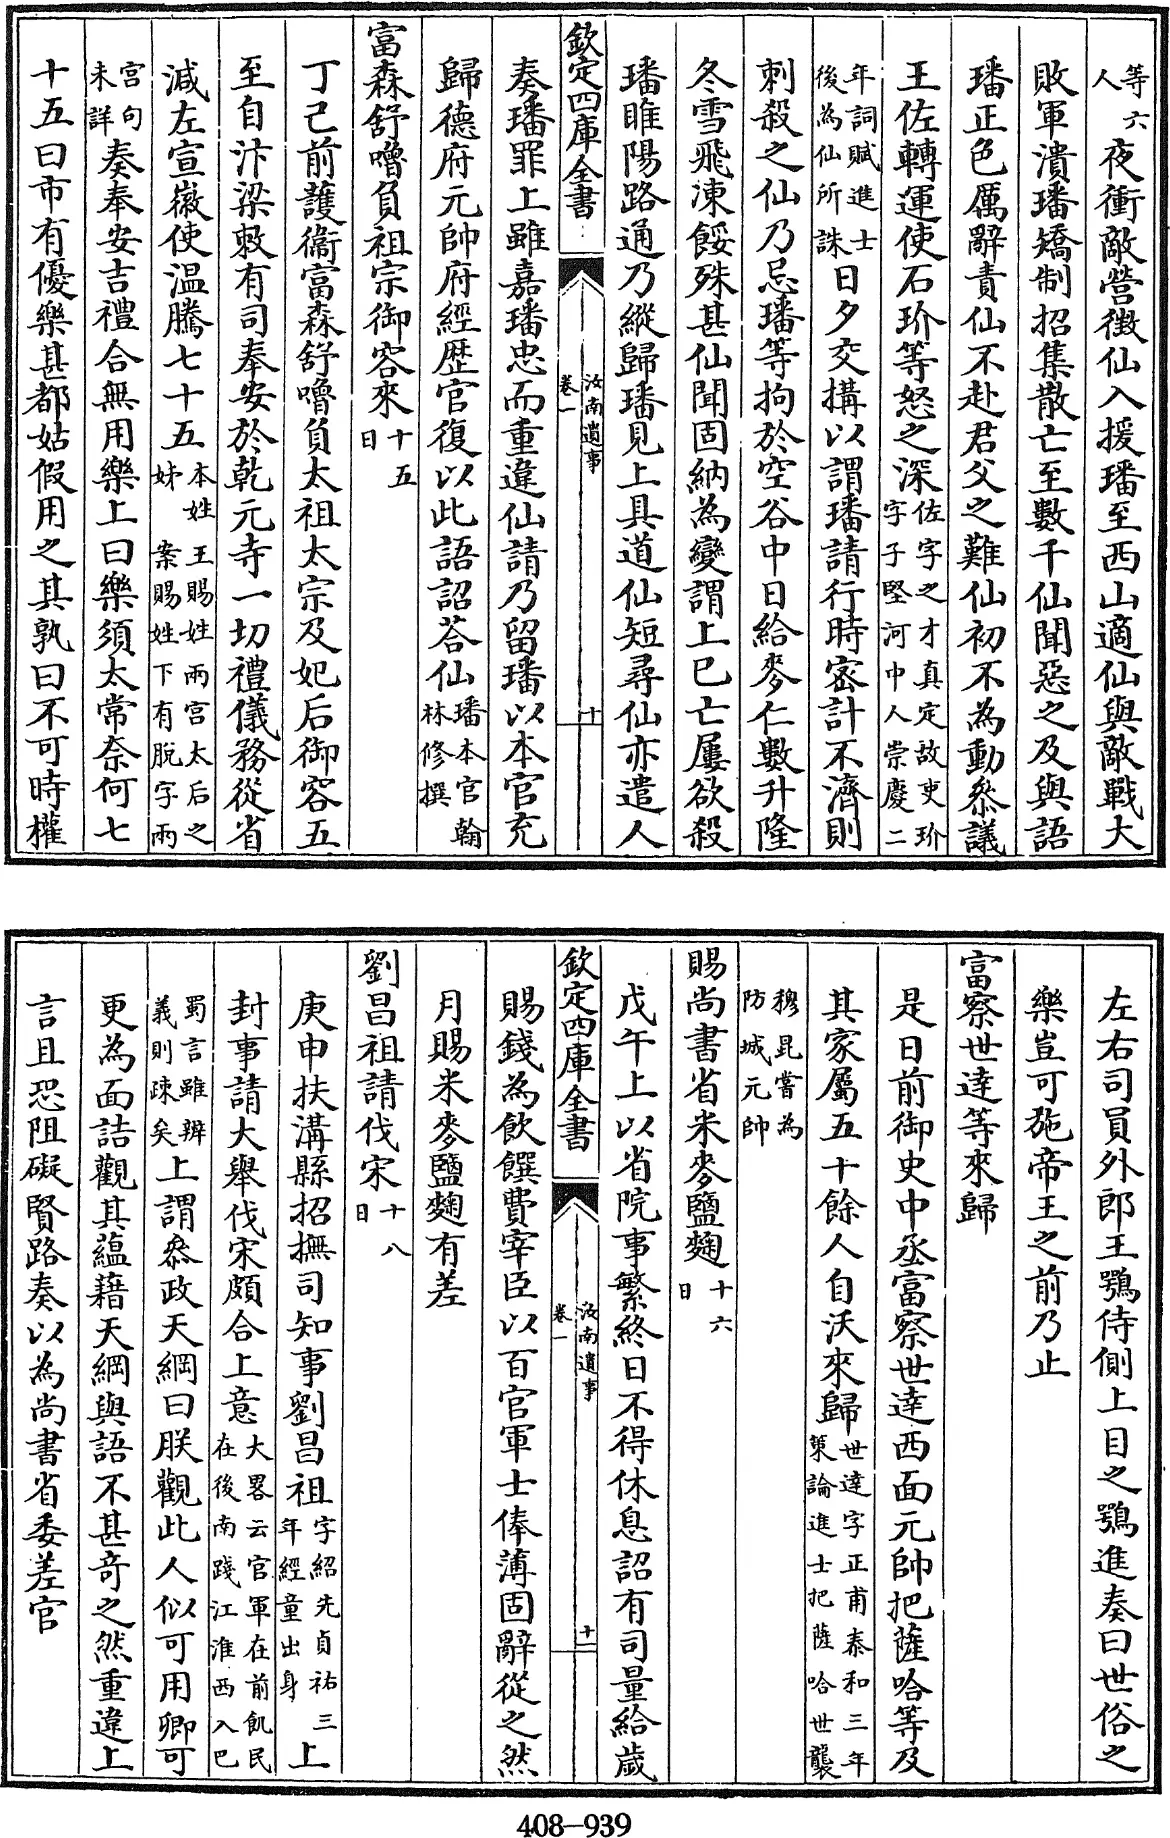 等六人夜衝敵營徴仙入援璠至西山適仙與敵戰大
敗軍潰璠矯制招集散亡至數千仙聞惡之及與語
璠正色厲辭責仙不赴君父之難仙初不為動叅議
王佐轉運使石玠等怒之深佐字之才真定故吏玠字子堅河中人崇慶二
年詞賦進士後為仙所誅日夕交搆以謂璠請行時密計不濟則
刺殺之仙乃忌璠等拘於空谷中日給麥仁數升隆
冬雪飛凍餒殊甚仙聞固納為變謂上已亡屢欲殺
璠睢陽路通乃縱歸璠見上具道仙短尋仙亦遣人
欽定四庫全書
汝南遺事
卷一
十
奏璠罪上雖嘉璠忠而重違仙請乃留璠以本官充
歸德府元帥府經歴官復以此語詔荅仙璠本官翰林修撰
富森舒嚕負祖宗御容來十五日
丁己前護衞富森舒嚕負太祖太宗及妃后御容五
至自汴梁敕有司奉安於乾元寺一切禮儀務從省
減左宣徽使温騰七十五本姓王賜姓兩宫太后之姊案賜姓下有脱字兩
宫句未詳奏奉安吉禮合無用樂上曰樂須太常奈何七
十五曰市有優樂甚都姑假用之其孰曰不可時權
左右司員外郎王鶚侍側上目之鶚進奏曰世俗之
樂豈可施帝王之前乃止
富察世逹等來歸
是日前御史中丞富察世逹西面元帥把薩哈等及
其家屬五十餘人自沃來歸世逹字正甫泰和三年策論進士把薩哈世襲
穆昆嘗為防城元帥
賜尚書省米麥鹽麴十六日
戊午上以省院事繁終日不得休息詔有司量給歲
欽定四庫全書
汝南遺事
卷一
十一
賜錢為飲饌費宰臣以百官軍士俸薄固辭從之然
月賜米麥鹽麴有差
劉昌祖請伐宋十八日
庚申扶溝縣招撫司知事劉昌祖字紹先貞祐三年經童出身上
封事請大舉伐宋頗合上意大畧云官軍在前飢民在後南踐江淮西入巴
蜀言雖辨義則疎矣上謂叅政天綱曰朕觀此人似可用卿可
更為面詰觀其藴藉天綱與語不甚奇之然重違上
言且恐阻礙賢路奏以為尚書省委差官
408-939